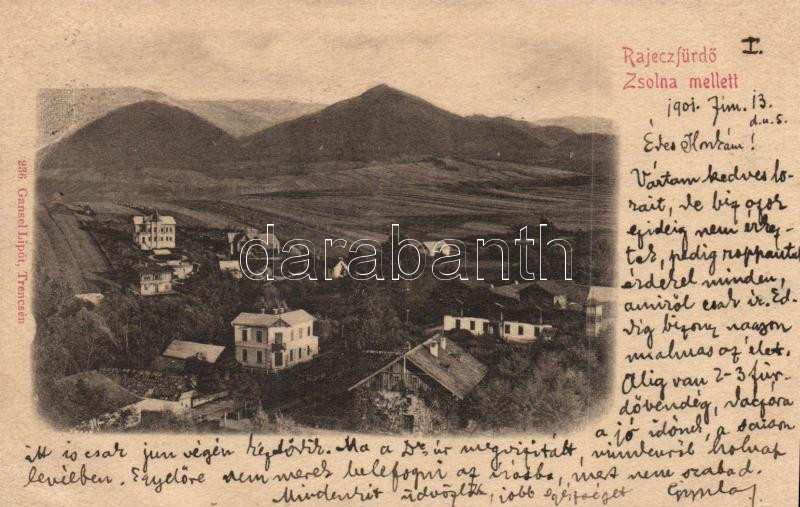 Rajeczfürdő
Zsolna mellett
I.
1901. Jún. 13.
d.u.5.
Édes Ilonkám!
Vártam kedves so-
rait, de biz azok
ejideig nem érkez-
tek, pedig roppantul
érdekel minden,
amiről csak ír. Ed-
dig bizony nagyon
unalmas az élet.
Alig van 2-3 für-
dővendég, daczára
a jó időnek, a saison
itt is csak jun végén kezdődik. Ma a Dr úr megvizitált, mindenről holnap
levélben. Egyelőre nem merek belefogni az írásba, mert nem szabad.
Mindenkit üdvözlök, jobb egészséget
Gyula
236 Gansel Lipót, Trencsén
darabanth